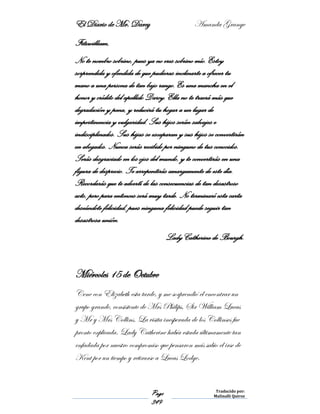 El Diario de Mr. Darcy Amanda Grange
Fitzwilliam,
No te nombro sobrino, pues ya no eres sobrino mío. Estoy
sorprendida y ofendida de que pudieras inclinarte a ofrecer tu
mano a una persona de tan bajo rango. Es una mancha en el
honor y crédito del apellido Darcy. Ella no te traerá más que
degradación y pena, y reducirá tu hogar a un lugar de
impertinencia y vulgaridad. Sus hijos serán salvajes e
indisciplinados. Sus hijas se escaparan y sus hijos se convertirán
en abogados. Nunca serás recibido por ninguno de tus conocidos.
Serás desgraciado en los ojos del mundo, y te convertirás en una
figura de desprecio. Te arrepentirás amargamente de este día.
Recordarás que te advertí de las consecuencias de tan desastroso
acto, pero para entonces será muy tarde. No terminaré esta carta
deseándote felicidad, pues ninguna felicidad puede seguir tan
desastrosa unión.
Lady Catherine de Bourgh.
Miércoles 15 de Octubre
Cene con Elizabeth esta tarde, y me sorprendió el encontrar un
grupo grande, consistente de Mrs Philips, Sir William Lucas
y Mr y Mrs Collins. La visita inesperada de los Collinses fue
pronto explicada. Lady Catherine había estado últimamente tan
enfadada por nuestro compromiso que pensaron más sabio el irse de
Kent por un tiempo y retirarse a Lucas Lodge.
Page
249
Traducido por:
Malinalli Quiroz